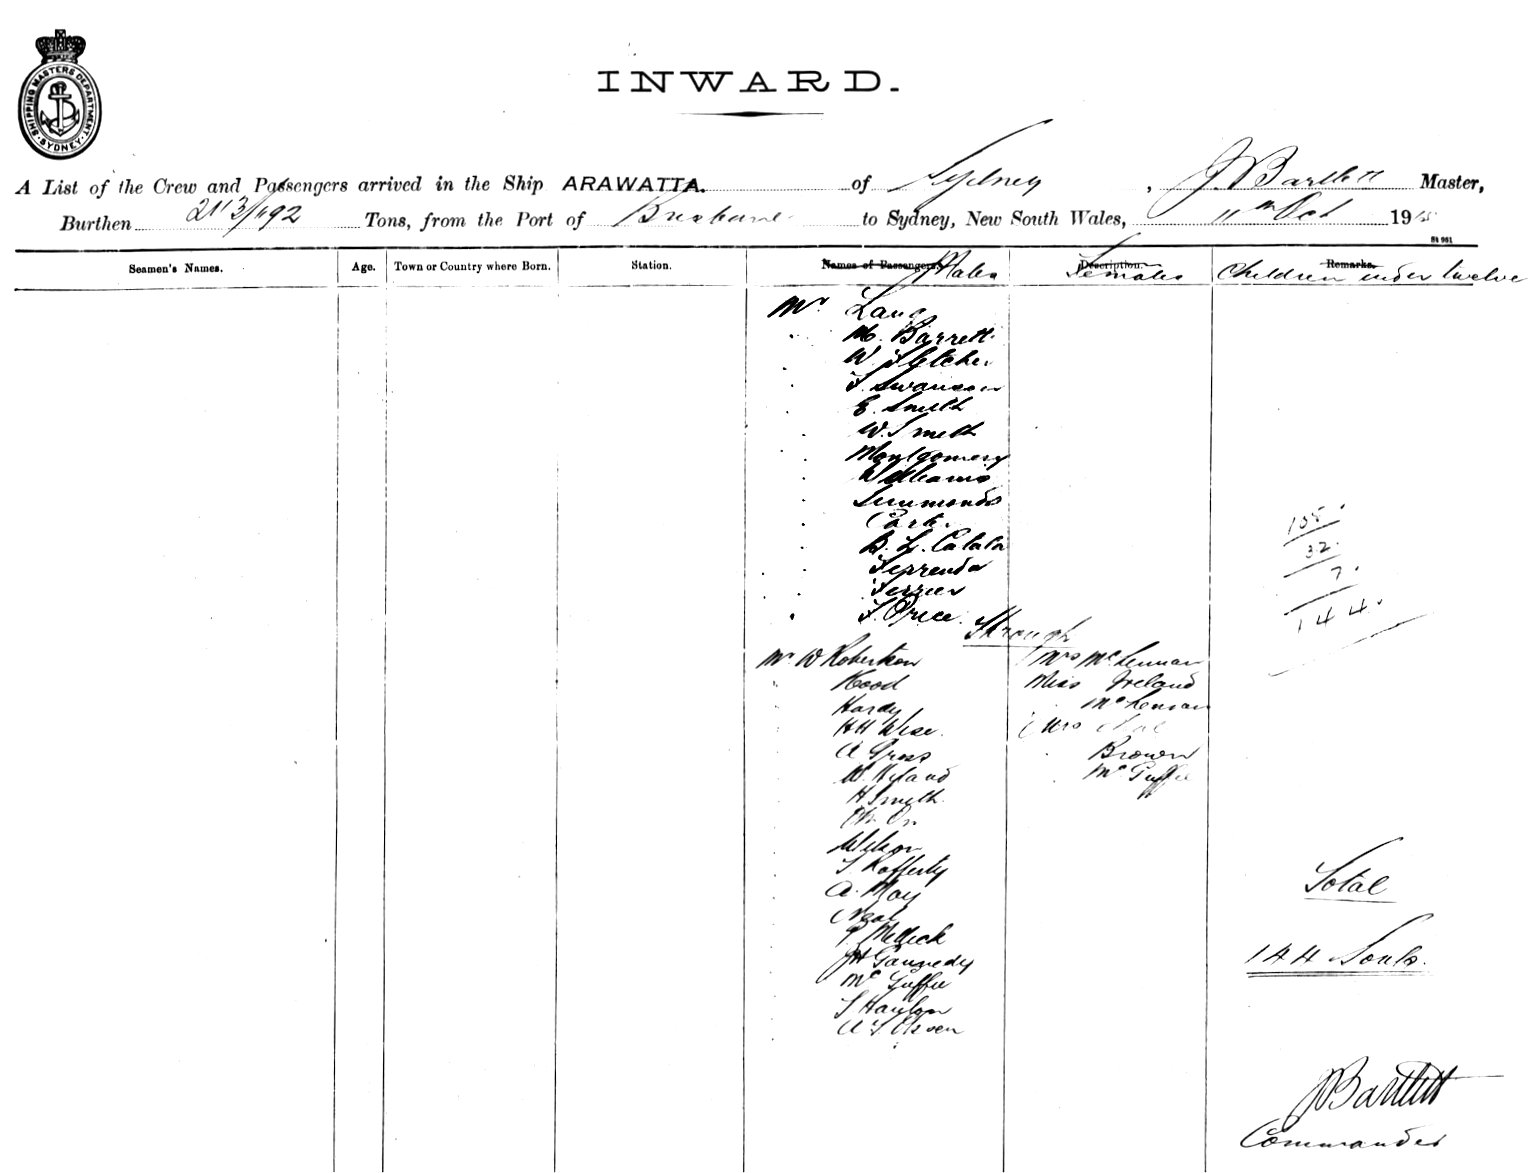 SHIPPING MASTERS DEPARTMENT. SYDNEY
INWARD.
A List of the Crew and Passengers arrived in the Ship ARAWATTA. of Sydney, J. Bartlett Master,
Burthen 2113/1192 Tons, from the Port of Brisbane to Sydney, New South Wales, 11th Oct 1915
St 961
Seamen's Names. Age. Town or Country where Born. Station. Names of Passengers. Males Description. Females Remarks. Children under twelve
Mr Lang
M. Barrett
W. Fletcher
F. Swanson
E. Smith
W. Smith
Montgomery
Williams
Simmonds
B. L.
Ferrier
F. Price
Through
Mr W Robertson Mrs McLennan
Hood Miss Ireland
Hardy McLennan
HH Wise Mrs
A Gross Brown
W. Hyland McGuffie
H Smith
Wilson
T Rafferty
A. May
Neal
P
JH
McGuffie
T Hanlon
105
32
7
144
Total
144 Souls.
J Bartlett
Commander